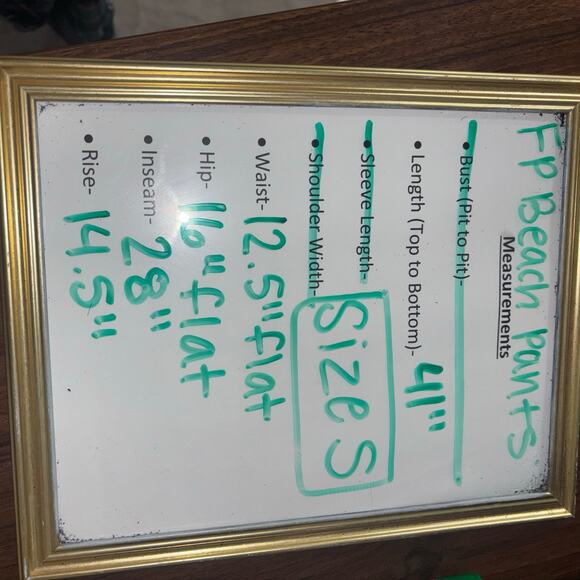 FP Beach pants
Measurements
• Bust (Pit to Pit)-
• Length (Top to Bottom)- 41"
• Sleeve Length-
• Shoulder Width- Size S
• Waist- 12.5" flat
• Hip- 16" flat
• Inseam- 28"
• Rise- 14.5"